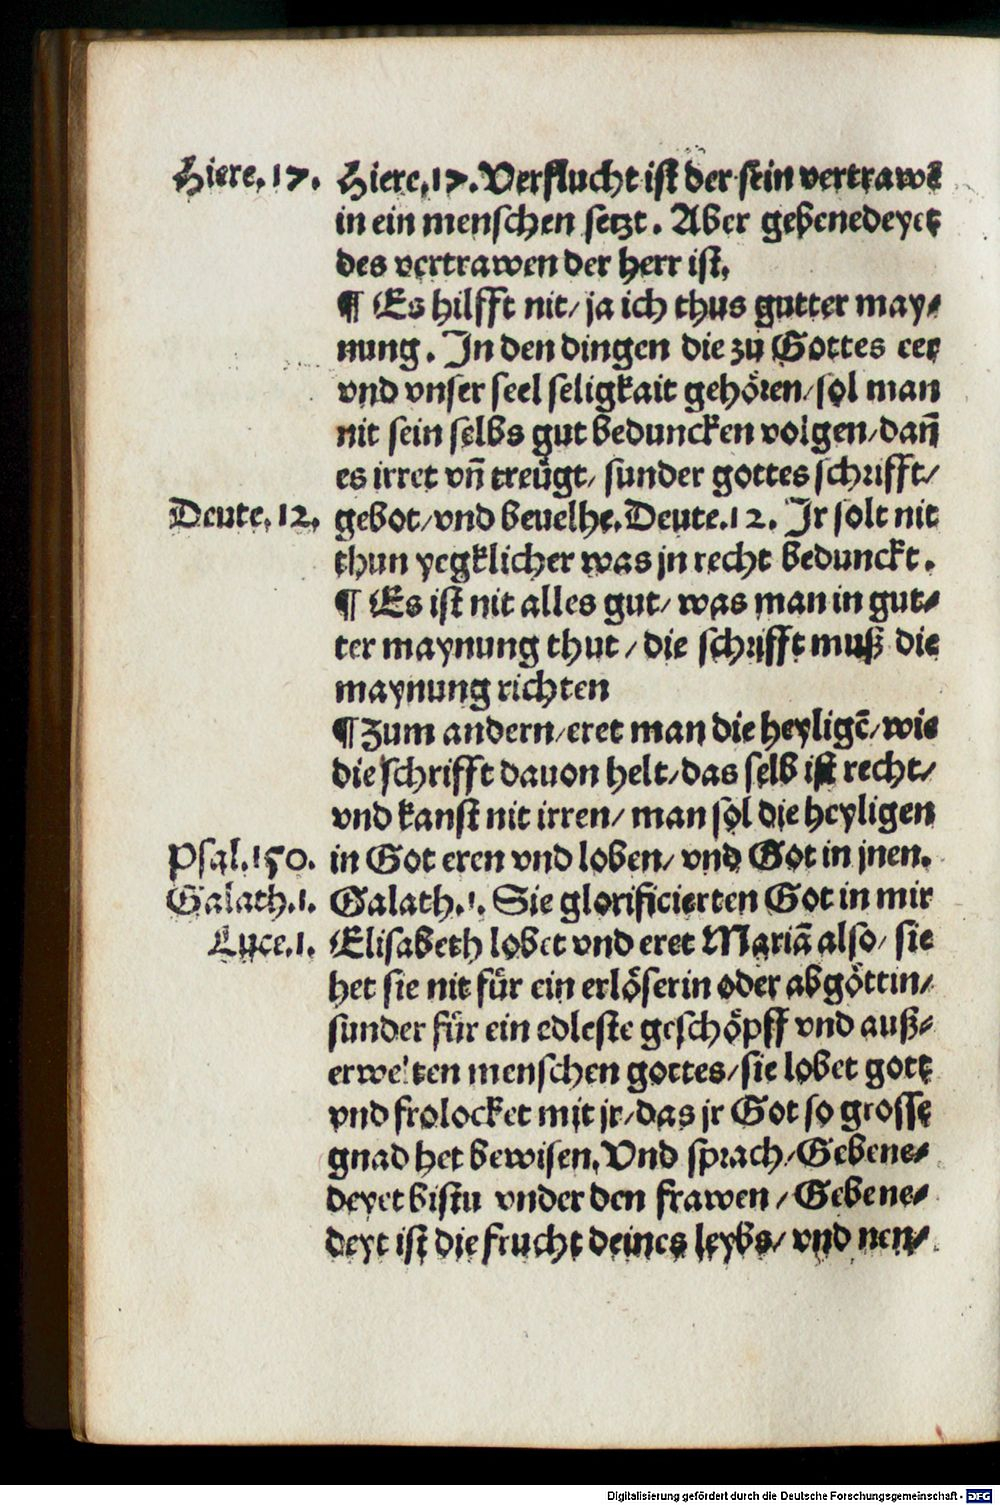 Hiere. 17. Hiere. 17. Verflucht ist der sein vertrawē
in ein menschen setzt. Aber gebenedeyet
des vertrawen der herr ist.
¶ Es hilfft nit/ ja ich thus gutter may⸗
nung. In den dingen die zů Gottes eer
vnd vnser seel seligkait gehören/ sol man
nit sein selbs gut beduncken volgen/ dañ
es irret vñ treügt/ sunder gottes schrifft/
Deute. 12. gebot/ vnd beuelhe. Deute. 12. Ir solt nit
thun yegklicher was jn recht bedunckt.
¶ Es ist nit alles gut/ was man in gut⸗
ter maynung thut/ die schrifft muß die
maynung richten
¶ Zum andern/ eret man die heyligē/ wie
die schrifft dauon helt/ das selb ist recht/
vnd kanst nit irren/ man sol die heyligen
Psal. 150. in Got eren vnd loben/ vnd Got in jnen.
Galath. 1. Galath. 1. Sie glorificierten Got in mir
Luce. 1. Elisabeth lobet vnd eret Mariā also/ sie
het sie nit für ein erlöserin oder abgöttin/
sunder für ein edleste geschöpff vnd auß⸗
erwelten menschen gottes/ sie lobet gott
vnd frolocket mit jr/ das jr Got so grosse
gnad het bewisen. Vnd sprach/ Gebene⸗
deyet bistu vnder den frawen/ Gebene⸗
deyt ist die frucht deines leybs/ vnd nen⸗
Digitalisierung gefördert durch die Deutsche Forschungsgemeinschaft - DFG